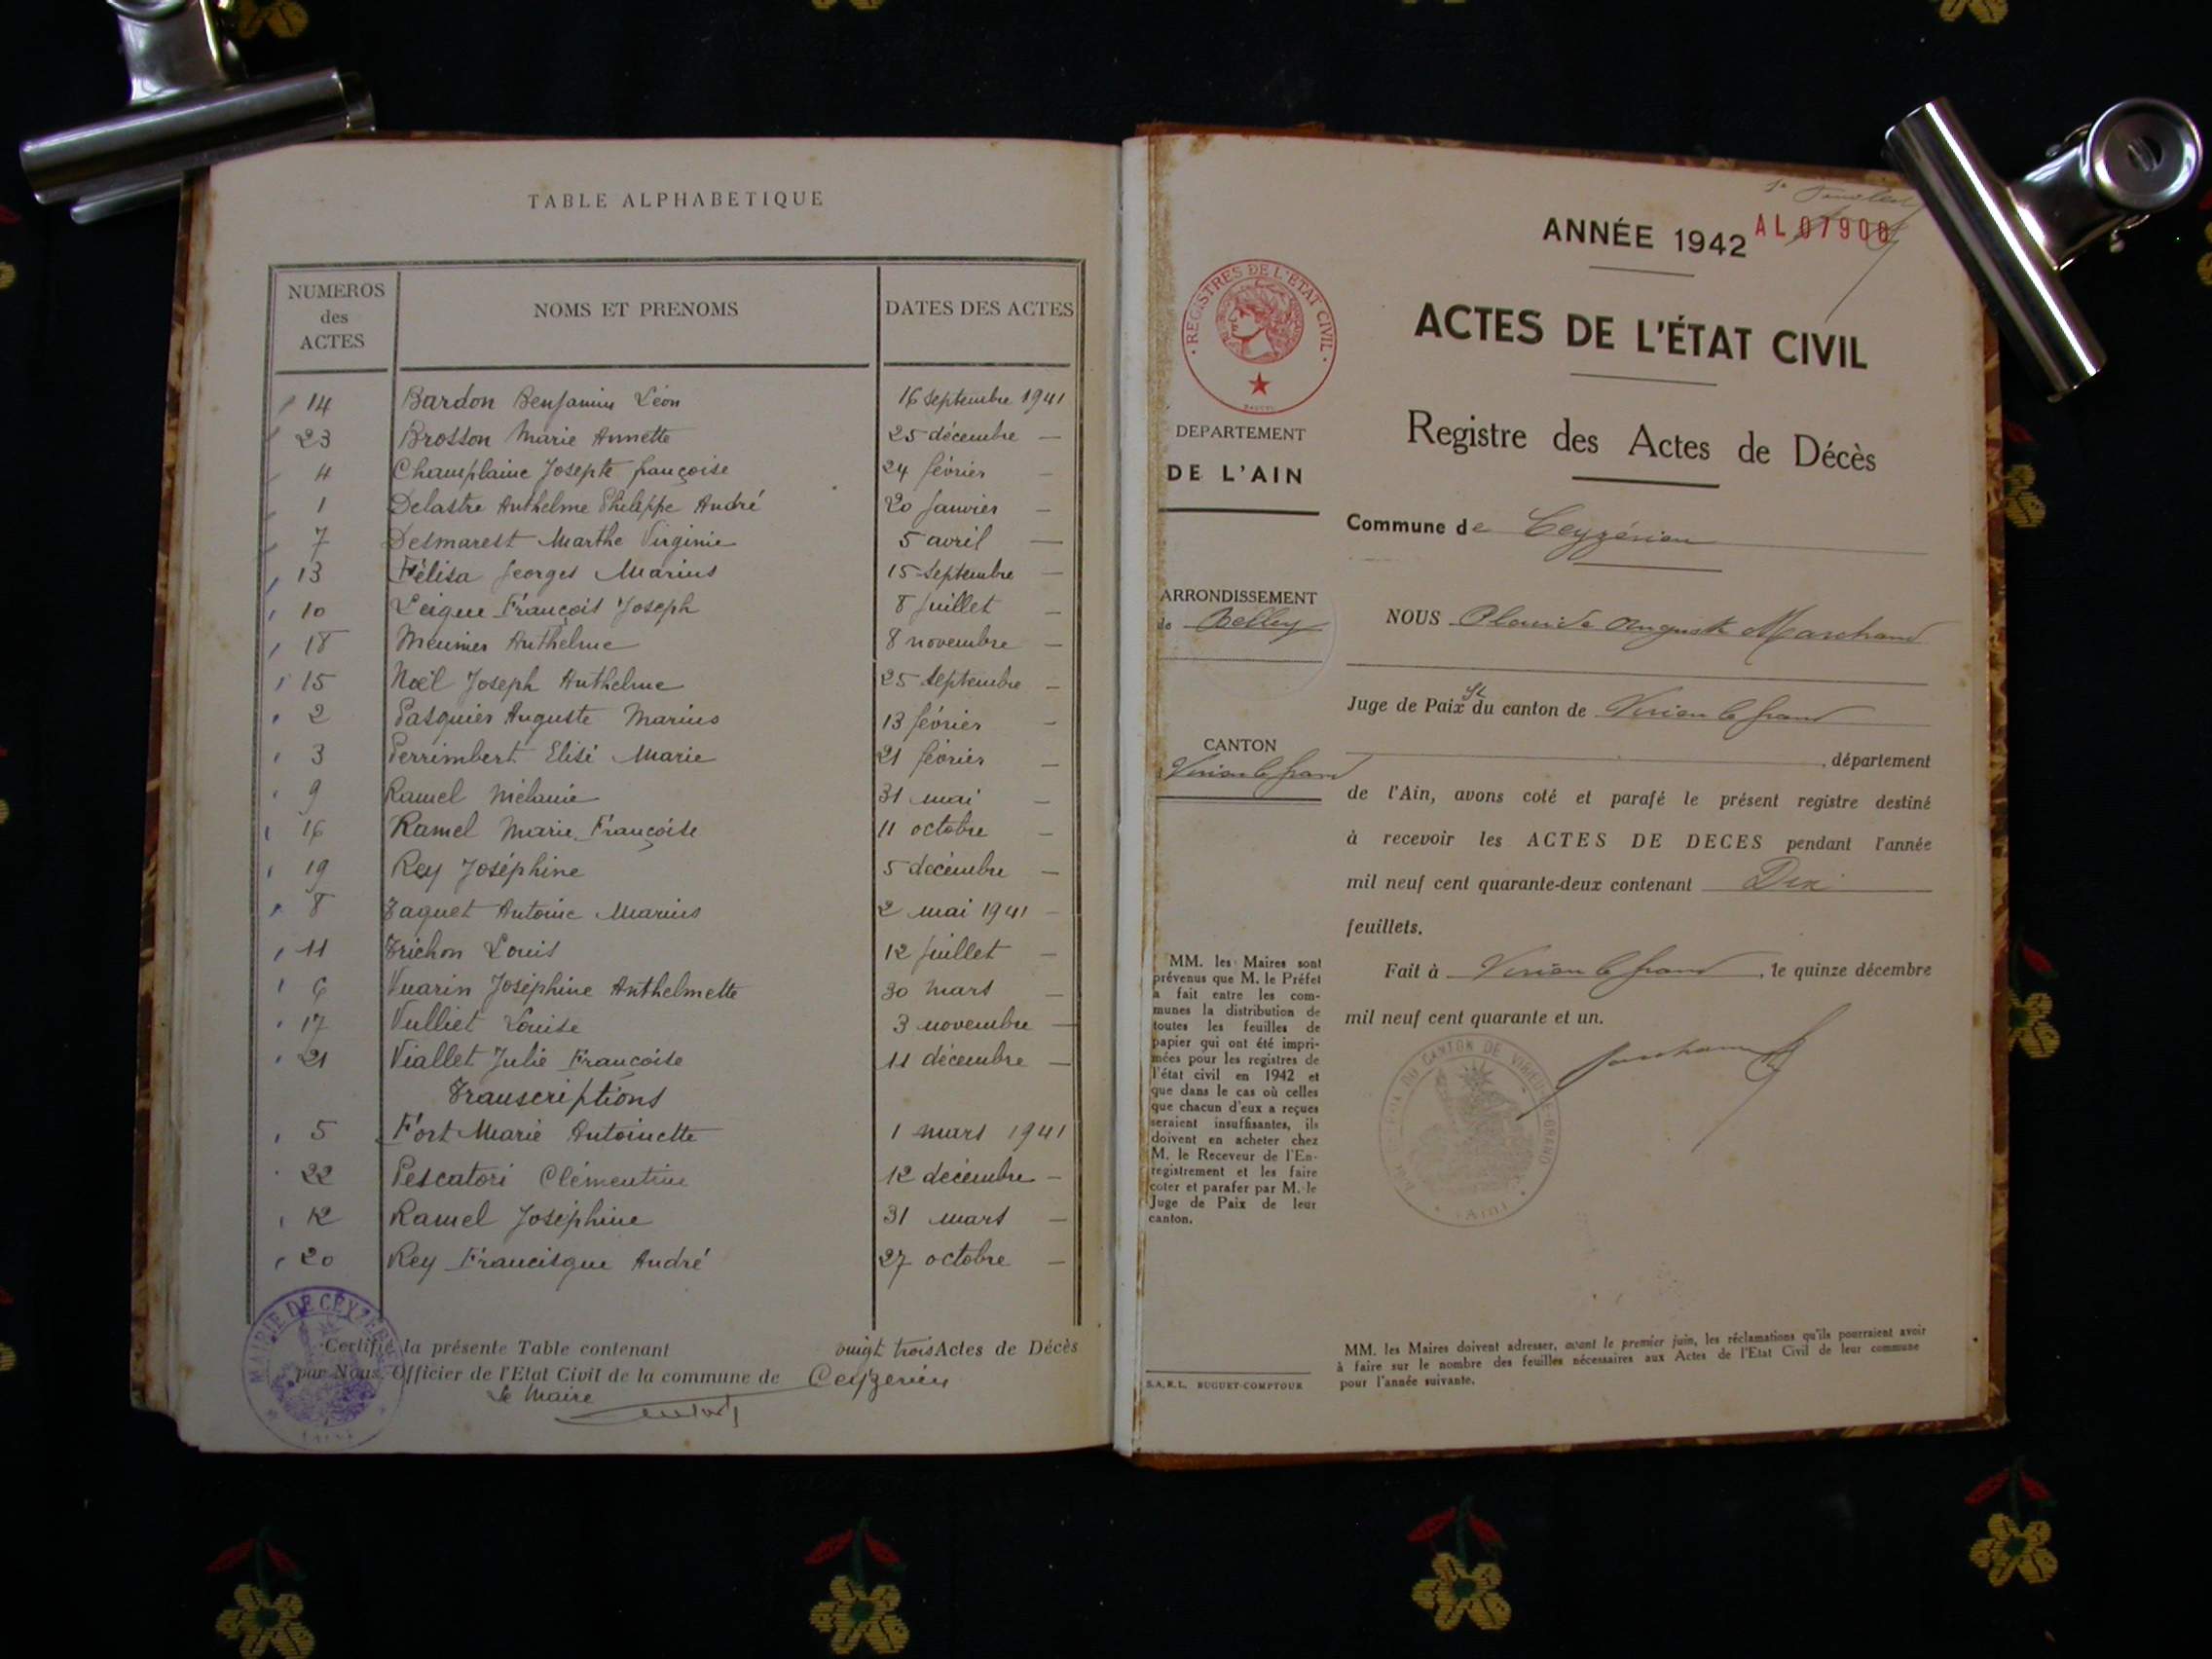 TABLE ALPHABETIQUE
NUMEROS des ACTES NOMS ET PRENOMS DATES DES ACTES
14 Bardon Benjamin Léon 16 septembre 1941
23 Brosson Marie Annette 25 décembre —
4 Champlaine Josepte françoise 24 février —
1 Delastre Anthelme Philippe André 20 janvier —
7 Desmarest Marthe Virginie 5 avril —
13 Félisa Georges Marius 15 septembre —
10 Leigue François Joseph 8 juillet —
18 Meunier Anthelme 8 novembre —
15 Noël Joseph Anthelme 25 septembre —
2 Pasquier Auguste Marius 13 février —
3 Perrimbert Elisé Marie 21 février —
9 Ramel Mélanie 31 mai —
16 Ramel Marie Françoise 11 octobre —
19 Rey Joséphine 5 décembre —
8 Taquet Antoine Marius 2 mai 1941 —
11 Trichon Louis 12 juillet —
6 Vuarin Joséphine Anthelmette 30 mars —
17 Vulliet Louise 3 novembre —
21 Viallet Julie Françoise 11 décembre —
Transcriptions
5 Fort Marie Antoinette 1 mars 1941
22 Pescatori Clémentine 12 décembre —
12 Ramel Joséphine 31 mars —
20 Rey Francisque André 27 octobre —
Certifié la présente Table contenant vingt trois Actes de Décès
par Nous, Officier de l'Etat Civil de la commune de Ceyzerieu
Le Maire
MAIRIE DE CEYZERIEU
ANNÉE 1942 AL 07908
REGISTRES DE L'ETAT CIVIL
ACTES DE L'ÉTAT CIVIL
Registre des Actes de Décès
DEPARTEMENT
DE L'AIN
Commune de Ceyzérieu
ARRONDISSEMENT
de Belley
NOUS Claude Auguste Marchand
Juge de Paix St du canton de Virieu le Grand
CANTON
Virieu le Grand
, département
de l'Ain, avons coté et parafé le présent registre destiné
à recevoir les ACTES DE DECES pendant l'année
mil neuf cent quarante-deux contenant Dix
feuillets.
Fait à Virieu le Grand, le quinze décembre
mil neuf cent quarante et un.
DU CANTON DE VIRIEU-LE-GRAND
(Ain)
MM. les Maires sont
prévenus que M. le Préfet
a fait entre les com-
munes la distribution de
toutes les feuilles de
papier qui ont été impri-
mées pour les registres de
l'état civil en 1942 et
que dans le cas où celles
que chacun d'eux a reçues
seraient insuffisantes, ils
doivent en acheter chez
M. le Receveur de l'En-
registrement et les faire
coter et parafer par M. le
Juge de Paix de leur
canton.
S.A.R.L. BUGUET-COMPTOUR
MM. les Maires doivent adresser, avant le premier juin, les réclamations qu'ils pourraient avoir
à faire sur le nombre des feuilles nécessaires aux Actes de l'Etat Civil de leur commune
pour l'année suivante.